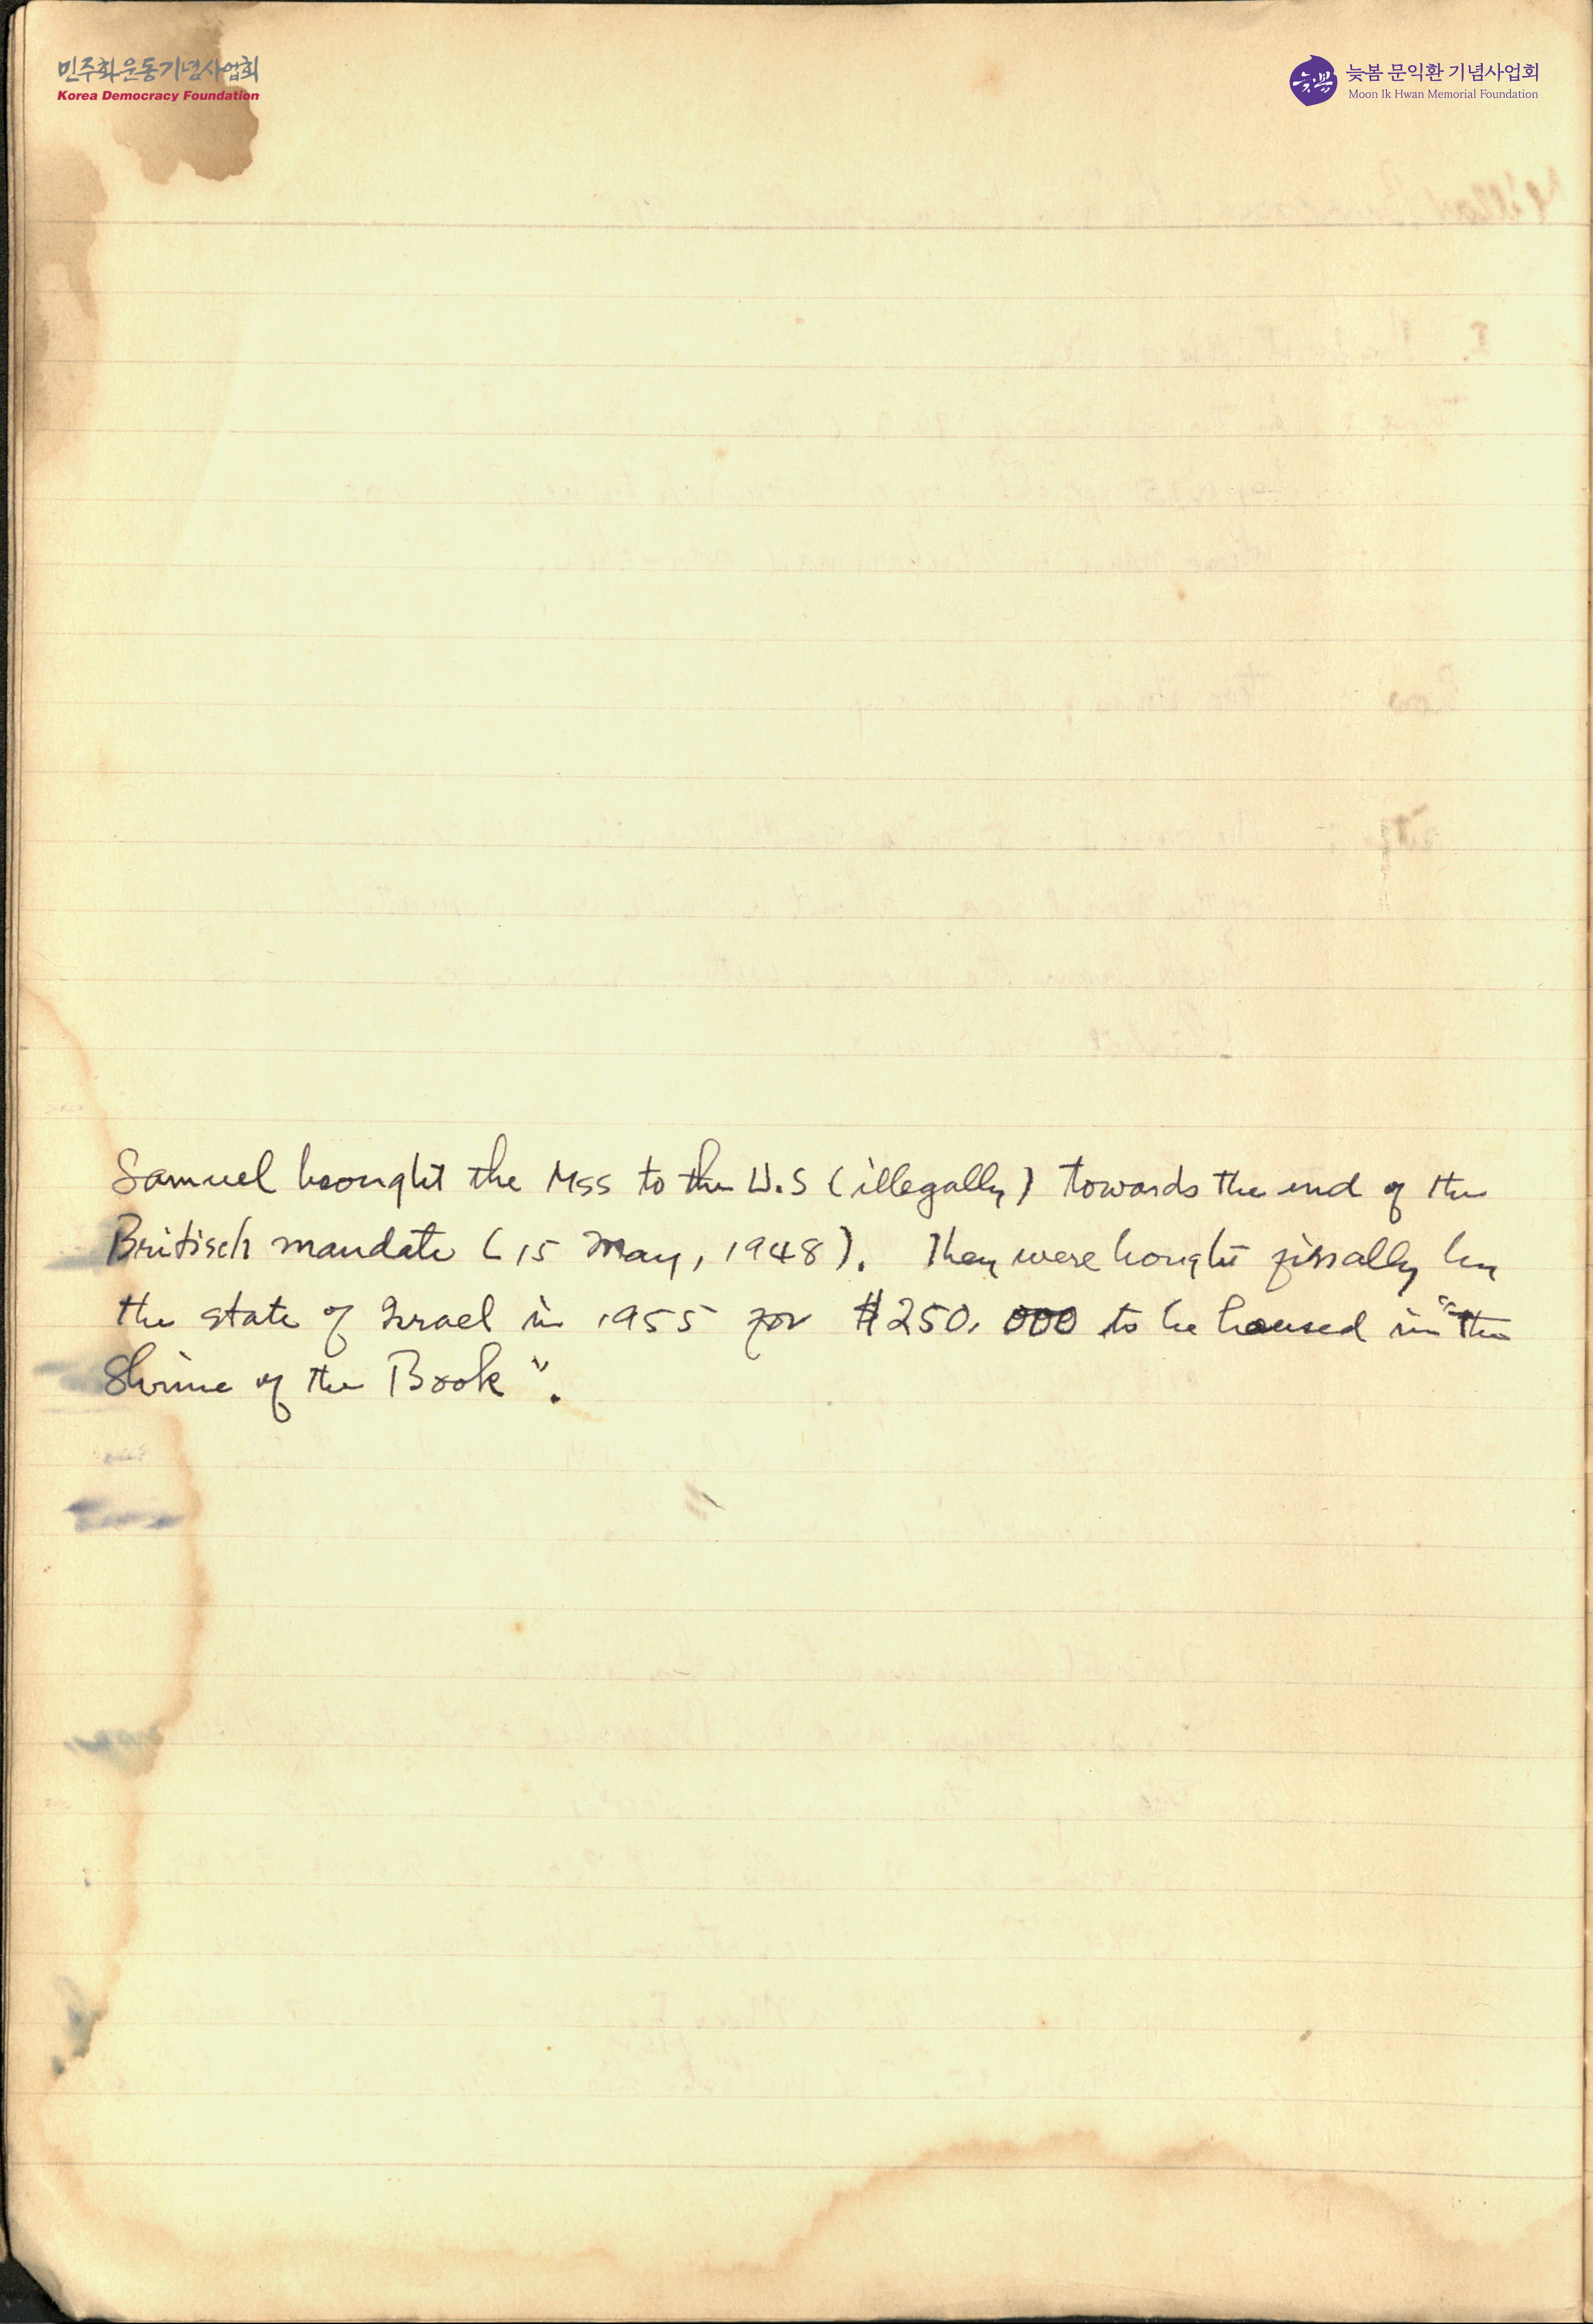 민주화운동기념사업회
Korea Democracy Foundation
늦봄
늦봄 문익환 기념사업회
Moon Ik Hwan Memorial Foundation
Samuel brought the Mss to the U.S (illegally) towards the end of the
Britisch mandate (15 May, 1948). They were bought finally by
the state of Israel in 1955 for $250,000 to be housed in "the
Shrine of the Book".